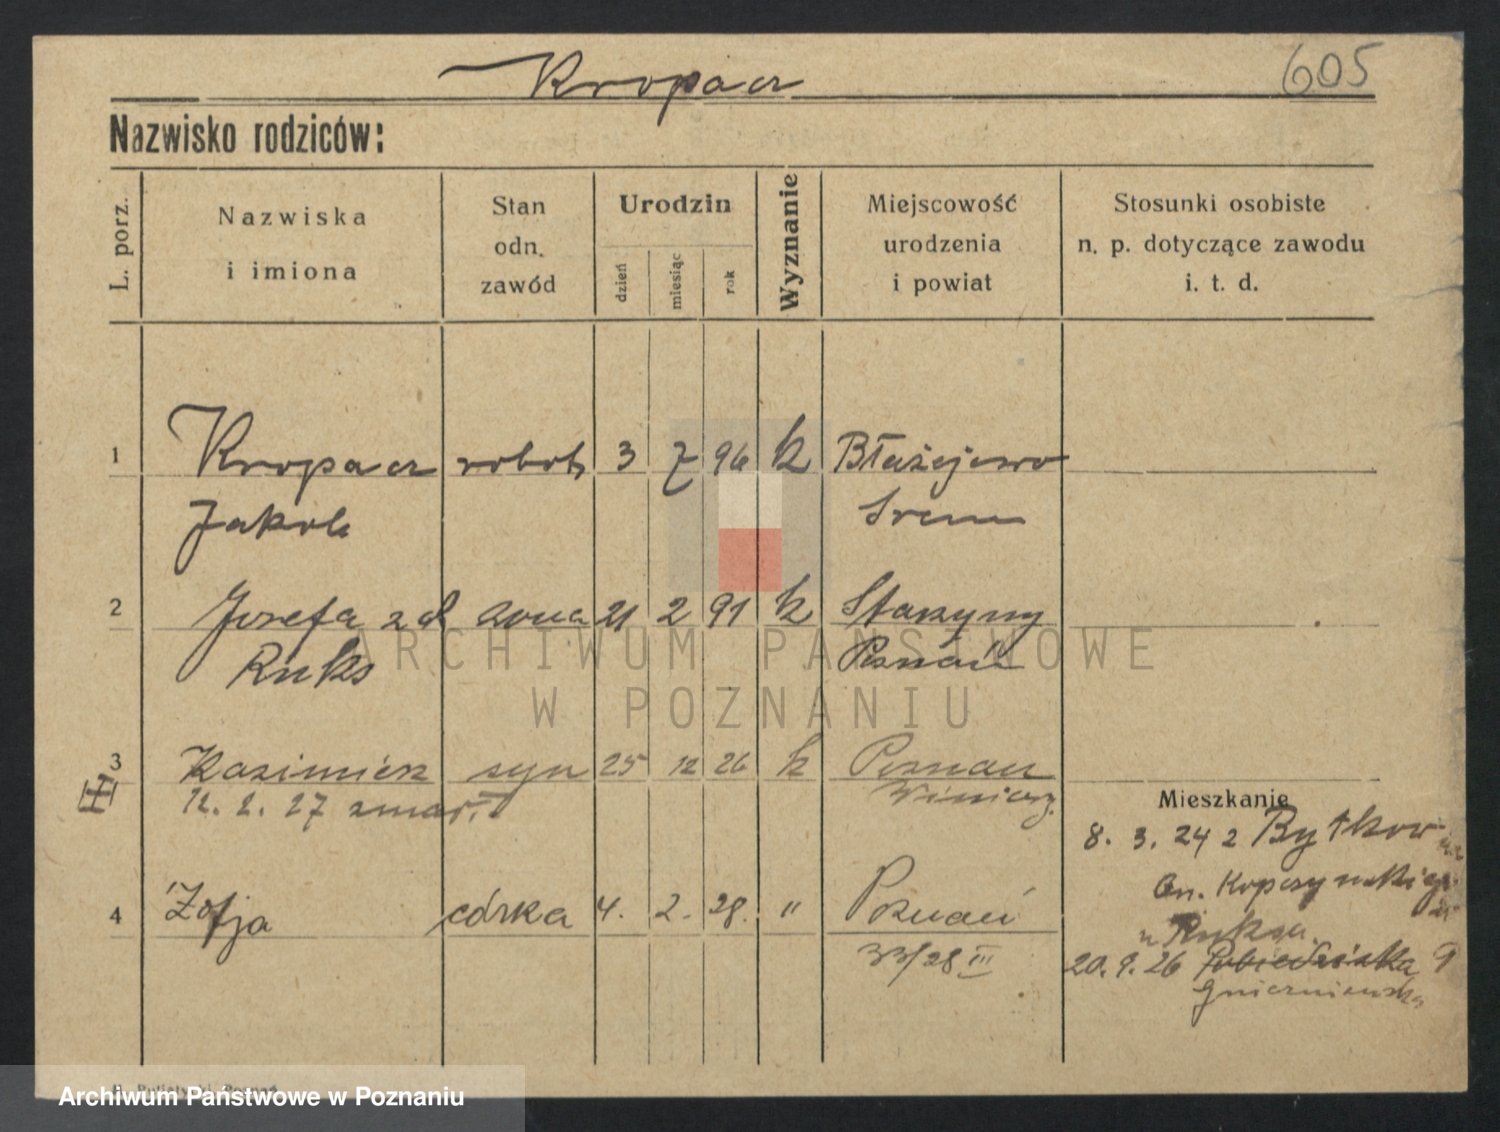 Kropacz
605
Nazwisko rodziców:
L. porz.
Nazwiska
i imiona
Stan
odn.
zawód
Urodzin
dzień
miesiąc
rok
Wyznanie
Miejscowość
urodzenia
i powiat
Stosunki osobiste
n. p. dotyczące zawodu
i. t. d.
1 Kropacz robot. 3 7 96 k Błażejewo
Jakób Śrem
2 Józefa z d. żona 21 2 91 k
Ruks Poznań
3 Kazimierz syn 25 12 26 k Poznań
12. 2. 27 zmar. Winiary
Mieszkanie
8. 3. 24 z Bytkowa
4 Zofja córka 4. 2. 28. " Poznań
u Ruksa
33/28 III
20. 9. 26 9
Gnieźnieńska
ARCHIWUM PAŃSTWOWE
W POZNANIU
Archiwum Państwowe w Poznaniu